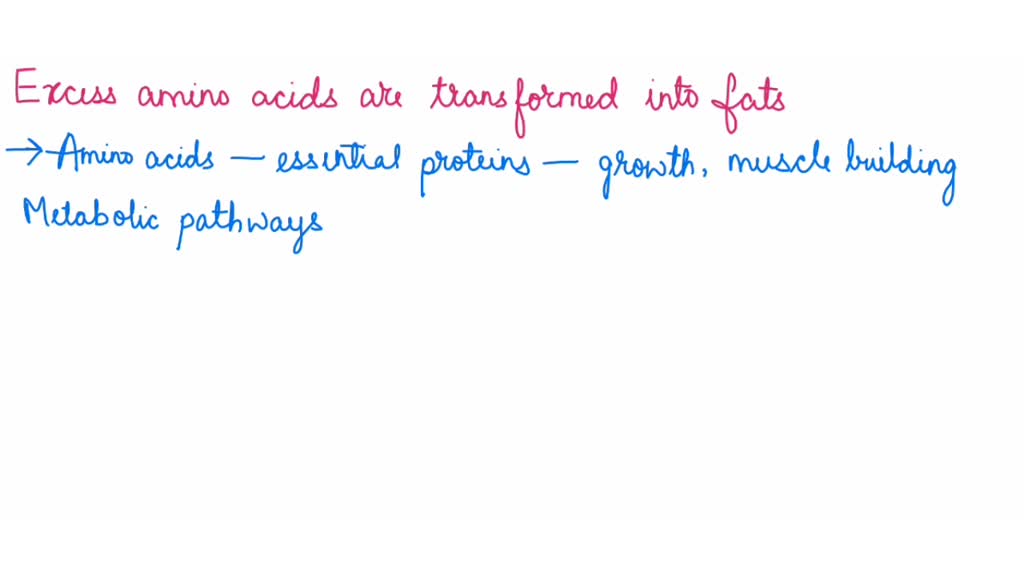 Excess amino acids are transformed into fats
→ Amino acids — essential proteins — growth, muscle building
Metabolic pathways